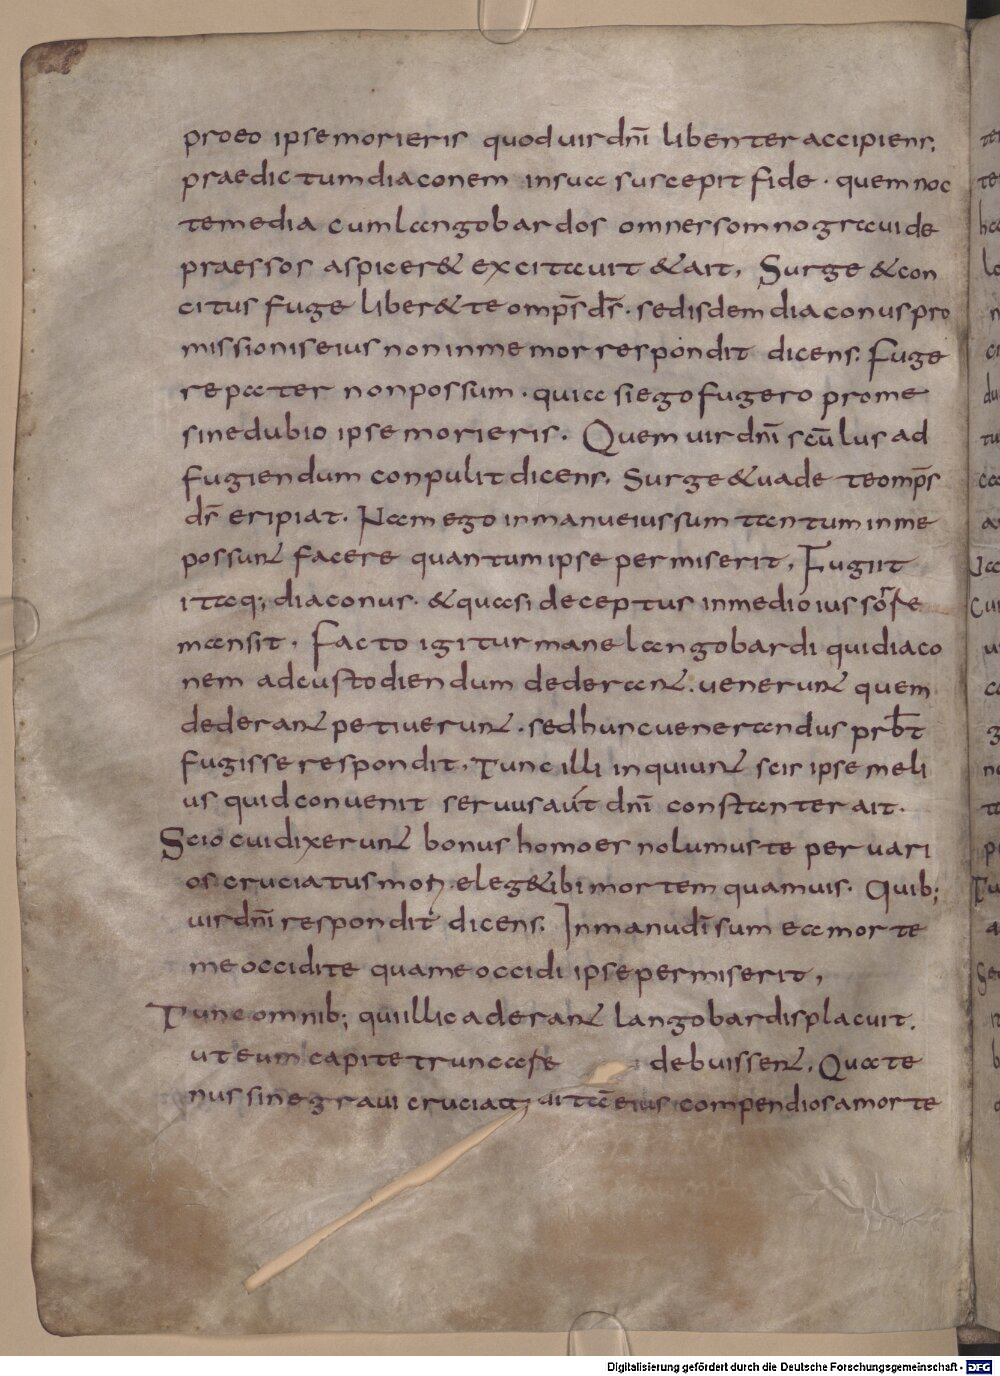 proeo ipse morieris quod uir dnī libenter accipiens;
praedictum diaconem in sua suscepit fide · quem noc
te media cum langobardos omnes somno graui de
praessos aspicer& excitauit & ait, Surge & con
citus fuge liber& te omps̄ ds̄ · sed isdem diaconus pro
missionis eius non inmemor respondit dicens; Fuge
re pater non possum · quia si ego fugero pro me
sine dubio ipse morieris. Quem uir dnī scūlus ad
fugiendum conpulit dicens; Surge & uade te omps̄
ds̄ eripiat. Nam ego in manu eius sum tantum in me
possunt facere quantum ipse permiserit, Fugiit
itaq; diaconus · & quasi deceptus in medio ius sor̄ te
mansit. Facto igitur mane langobardi qui diaco
nem ad custodiendum dederant. uenerunt quem
dederant petiuerunt · sed hunc uenerandus prb̄t
fugisse respondit. Tunc illi inquiunt scis ipse meli
us quid conuenit seruus aūt dnī constanter ait.
Scio cui dixerunt bonus homo es nolumus te per uari
os cruciatus mori. eleg& ibi mortem quamuis. Quib;
uir dnī respondit dicens. In manu dī sum ea morte
me occidite qua me occidi ipse permiserit,
Tunc omnib; qui illic aderant langobardis placuit.
ut eum capite truncare debuissent. Quate
nus sine graui cruciatu uitā eius compendiosa morte
Digitalisierung gefördert durch die Deutsche Forschungsgemeinschaft - DFG